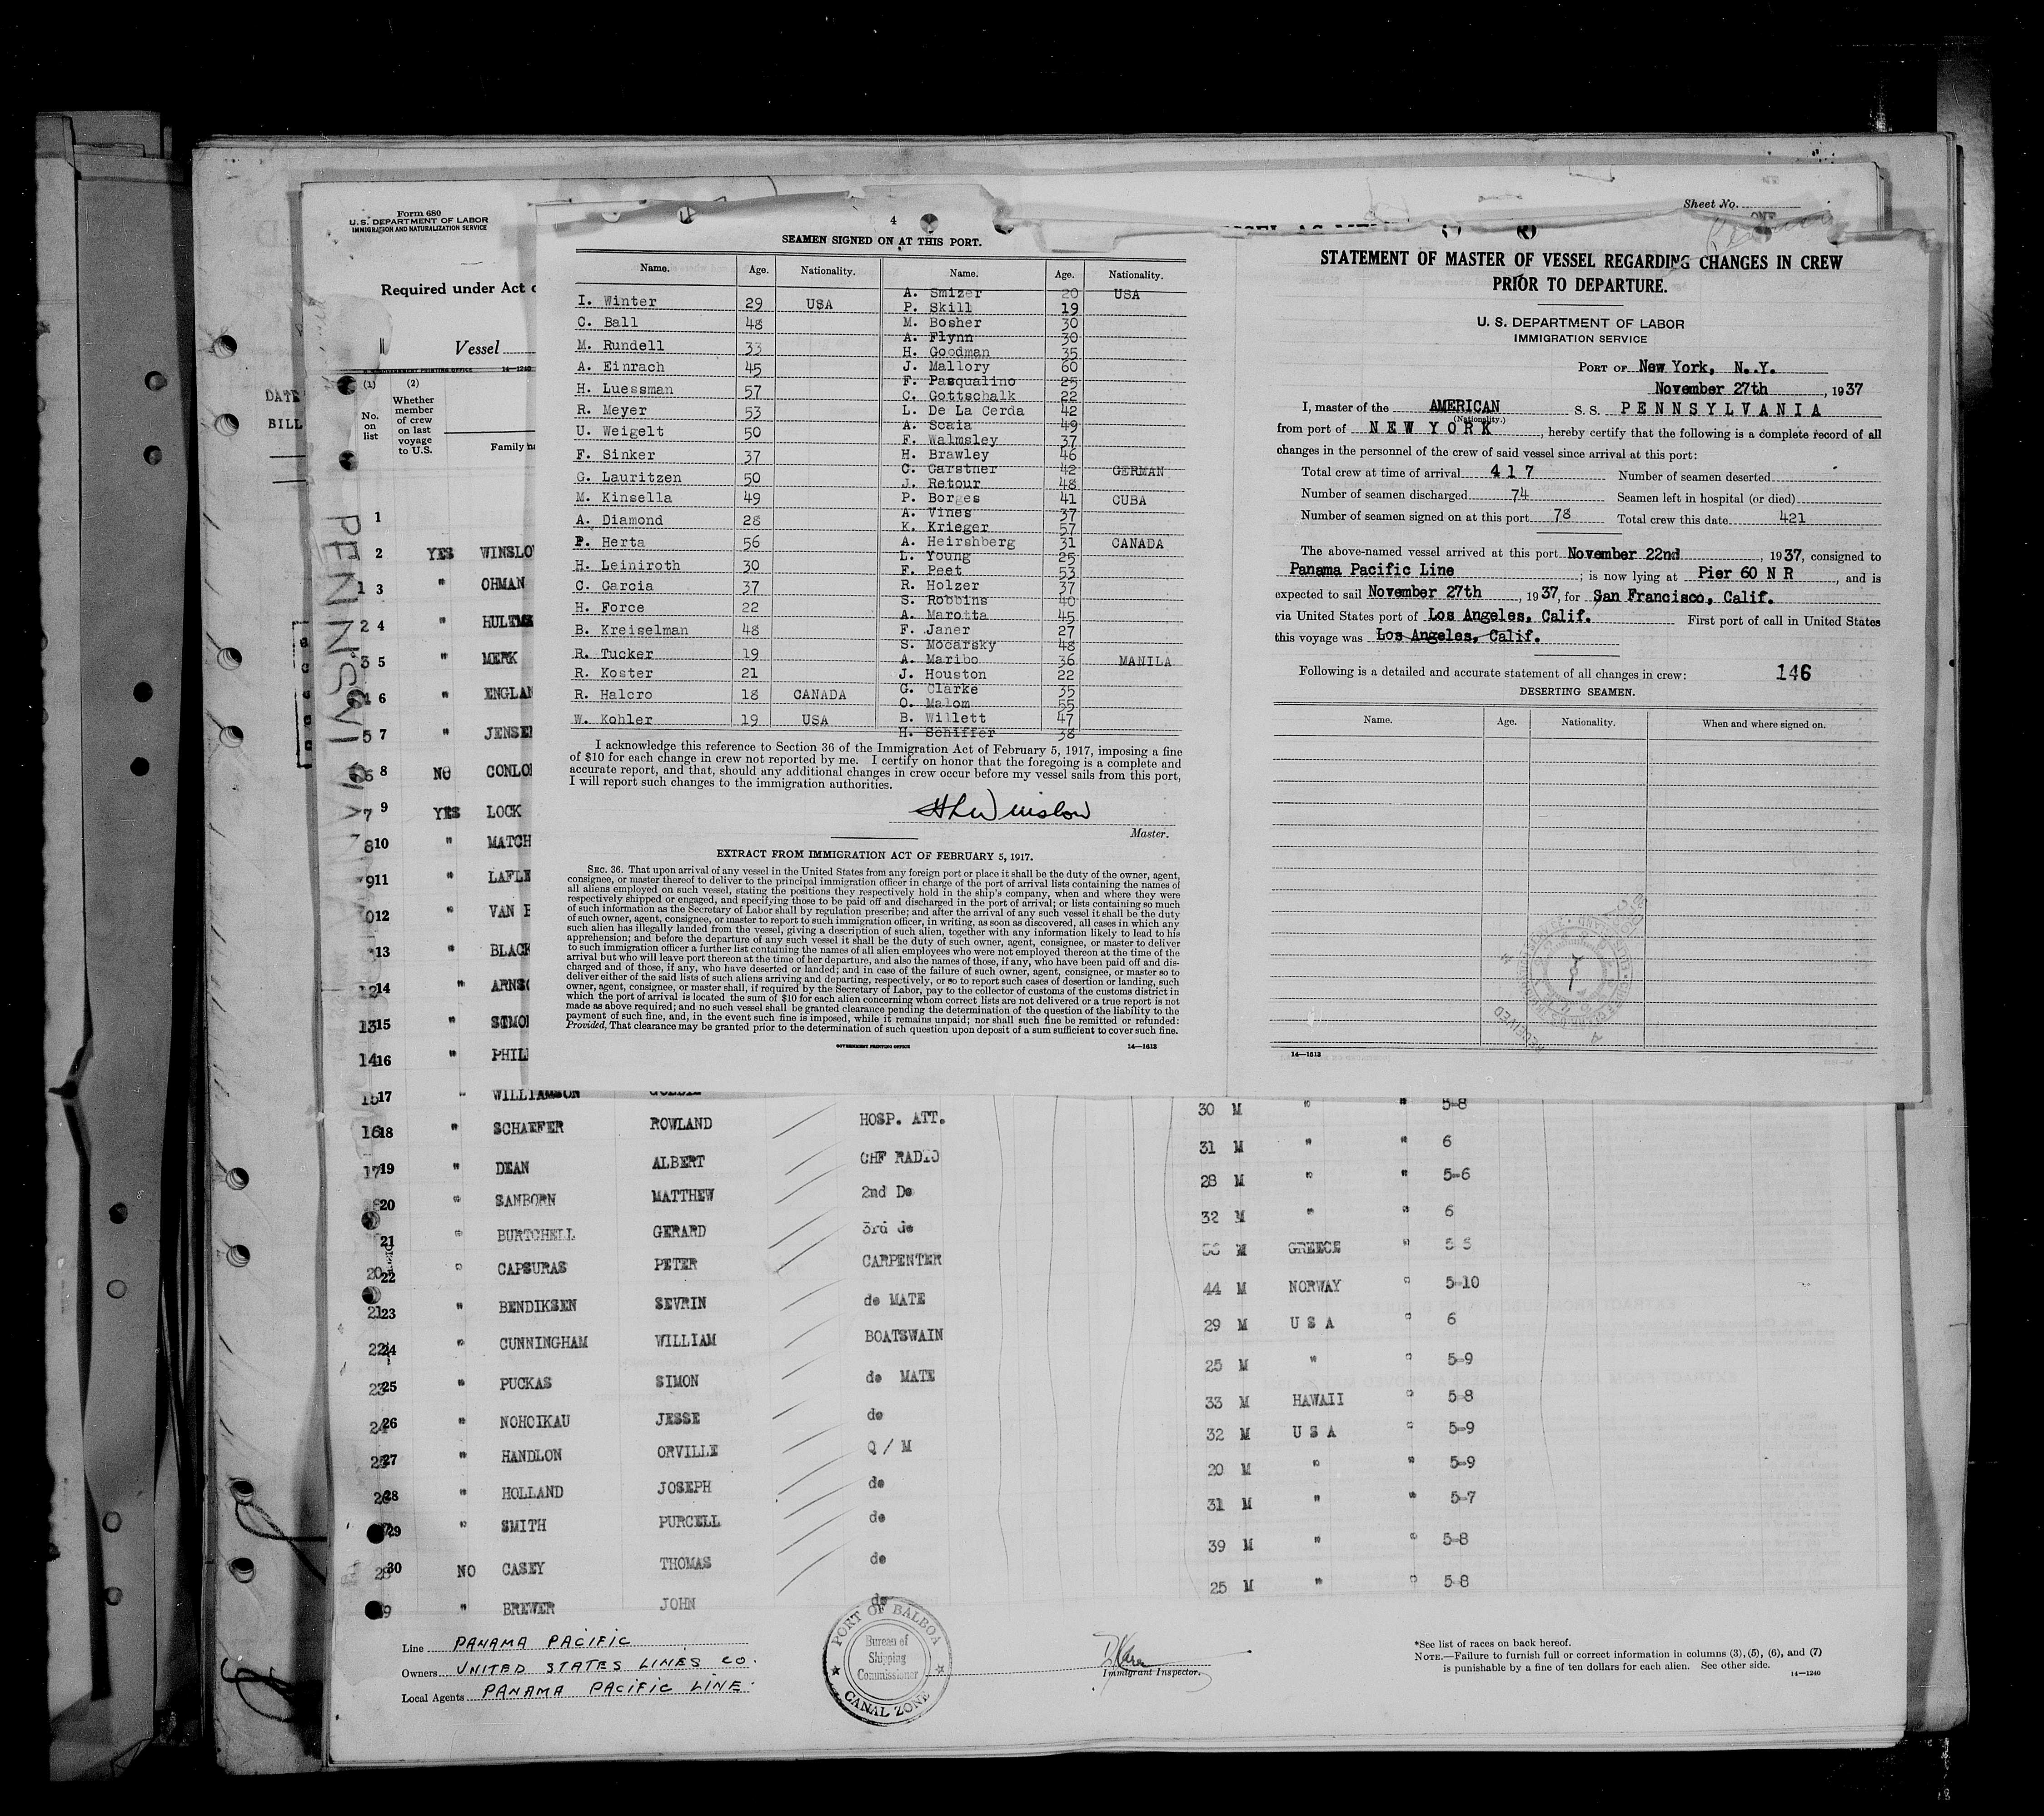 Form 680
U. S. DEPARTMENT OF LABOR
IMMIGRATION AND NATURALIZATION SERVICE
Required under Act
Vessel
14—1240
(1)
(2)
No. on list
Whether member of crew on last voyage to U.S.
Family
DATE
BILL
PENNSYLVANIA
1
2 YES WINSLO
1 3 " OHMAN
2 4 "
3 5 " MERK
6 " ENGLAN
5 7 " JENSE
6 8 NO CONLO
7 9 YES LOCK
8 10 " MATCH
9 11 " LAFLE
12 " VAN
13 " BLACK
12 14 " ARNS
13 15 " SIMO
14 16 " PHIL
4
SEAMEN SIGNED ON AT THIS PORT.
Name. Age. Nationality. Name. Age. Nationality.
I. Winter 29 USA
C. Ball 48
M. Rundell 33
A. Einrach 45
H. Luessman 57
R. Meyer 53
U. Weigelt 50
F. Sinker 37
G. Lauritzen 50
M. Kinsella 49
A. Diamond 28
P. Herta 56
H. Leiniroth 30
C. Garcia 37
H. Force 22
B. Kreiselman 48
R. Tucker 19
R. Koster 21
R. Halcro 18 CANADA
W. Kohler 19 USA
A. Smizer 20 USA
P. Skill 19
M. Bosher 30
A. Flynn 30
H. Goodman 35
J. Mallory 60
F. Pasqualino 25
C. Gottschalk 22
L. De La Cerda 42
A. Scaia 49
F. Walmsley 37
H. Brawley 46
C. Garstner 42 GERMAN
J. Retour 48
P. Borges 41 CUBA
A. Vines 37
K. Krieger 57
A. Heirshberg 31 CANADA
L. Young 25
F. Peet 53
R. Holzer 37
S. Robbins 40
A. Marotta 45
F. Janer 27
S. Mocarsky 48
A. Maribo 36 MANILA
J. Houston 22
G. Clarke 35
O. Malom 55
B. Willett 47
H. Schiffer 38
I acknowledge this reference to Section 36 of the Immigration Act of February 5, 1917, imposing a fine
of $10 for each change in crew not reported by me. I certify on honor that the foregoing is a complete and
accurate report, and that, should any additional changes in crew occur before my vessel sails from this port,
I will report such changes to the immigration authorities.
H L Winslow
Master.
EXTRACT FROM IMMIGRATION ACT OF FEBRUARY 5, 1917.
SEC. 36. That upon arrival of any vessel in the United States from any foreign port or place it shall be the duty of the owner, agent,
consignee, or master thereof to deliver to the principal immigration officer in charge of the port of arrival lists containing the names of
all aliens employed on such vessel, stating the positions they respectively hold in the ship's company, when and where they were
respectively shipped or engaged, and specifying those to be paid off and discharged in the port of arrival; or lists containing so much
of such information as the Secretary of Labor shall by regulation prescribe; and after the arrival of any such vessel it shall be the duty
of such owner, agent, consignee, or master to report to such immigration officer, in writing, as soon as discovered, all cases in which any
such alien has illegally landed from the vessel, giving a description of such alien, together with any information likely to lead to his
apprehension; and before the departure of any such vessel it shall be the duty of such owner, agent, consignee, or master to deliver
to such immigration officer a further list containing the names of all alien employees who were not employed thereon at the time of the
arrival but who will leave port thereon at the time of her departure, and also the names of those, if any, who have been paid off and dis-
charged and of those, if any, who have deserted or landed; and in case of the failure of such owner, agent, consignee, or master so to
deliver either of the said lists of such aliens arriving and departing, respectively, or so to report such cases of desertion or landing, such
owner, agent, consignee, or master shall, if required by the Secretary of Labor, pay to the collector of customs of the customs district in
which the port of arrival is located the sum of $10 for each alien concerning whom correct lists are not delivered or a true report is not
made as above required; and no such vessel shall be granted clearance pending the determination of the question of the liability to the
payment of such fine, and, in the event such fine is imposed, while it remains unpaid; nor shall such fine be remitted or refunded:
Provided, That clearance may be granted prior to the determination of such question upon deposit of a sum sufficient to cover such fine.
GOVERNMENT PRINTING OFFICE 14—1613
Sheet No.
STATEMENT OF MASTER OF VESSEL REGARDING CHANGES IN CREW
PRIOR TO DEPARTURE.
U. S. DEPARTMENT OF LABOR
IMMIGRATION SERVICE
PORT OF New York, N. Y.
November 27th, 1937
I, master of the AMERICAN S. S. PENNSYLVANIA
(Nationality.)
from port of NEW YORK, hereby certify that the following is a complete record of all
changes in the personnel of the crew of said vessel since arrival at this port:
Total crew at time of arrival 417 Number of seamen deserted
Number of seamen discharged 74 Seamen left in hospital (or died)
Number of seamen signed on at this port 78 Total crew this date 421
The above-named vessel arrived at this port November 22nd, 1937, consigned to
Panama Pacific Line; is now lying at Pier 60 N R, and is
expected to sail November 27th, 1937, for San Francisco, Calif.
via United States port of Los Angeles, Calif. First port of call in United States
this voyage was Los Angeles, Calif.
Following is a detailed and accurate statement of all changes in crew: 146
DESERTING SEAMEN.
Name. Age. Nationality. When and where signed on.
RECEIVED
14—1613
17 " WILLIAMSON
30 M " " 5-8
16 18 " SCHAEFER ROWLAND HOSP. ATT.
31 M " " 6
17 19 " DEAN ALBERT CHF RADIO
28 M " " 5-6
20 " SANBORN MATTHEW 2nd Do
32 M " " 6
21 " BURTCHELL GERARD 3rd do
M GREECE " 5 5
20 22 " CAPSURAS PETER CARPENTER
44 M NORWAY " 5-10
21 23 " BENDIKSEN SEVRIN do MATE
29 M U S A " 6
22 24 " CUNNINGHAM WILLIAM BOATSWAIN
25 M " " 5-9
23 25 " PUCKAS SIMON do MATE
33 M HAWAII " 5-8
24 26 " NOHOIKAU JESSE do
32 M U S A " 5-9
25 27 " HANDLON ORVILLE Q / M
20 M " " 5-9
26 28 " HOLLAND JOSEPH do
31 M " " 5-7
29 " SMITH PURCELL do
39 M " " 5-8
28 30 NO CASEY THOMAS do
25 M " " 5-8
9 " BREWER JOHN do
Line PANAMA PACIFIC
Owners UNITED STATES LINES CO.
Local Agents PANAMA PACIFIC LINE.
PORT OF BALBOA
Bureau of
Shipping
Commissioner
CANAL ZONE
Immigrant Inspector.
*See list of races on back hereof.
NOTE.—Failure to furnish full or correct information in columns (3), (5), (6), and (7)
is punishable by a fine of ten dollars for each alien. See other side.
14—1240